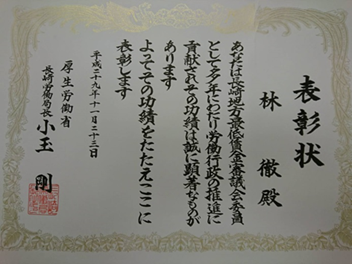 表彰状
林 徹 殿
あなたは長崎地方最低賃金審議会委員
として多年にわたり労働行政の推進に
貢献されその功績は誠に顕著なものが
あります
よってその功績をたたえここに
表彰します
平成二十九年十一月二十三日
厚生労働省
長崎労働局長 小玉 剛